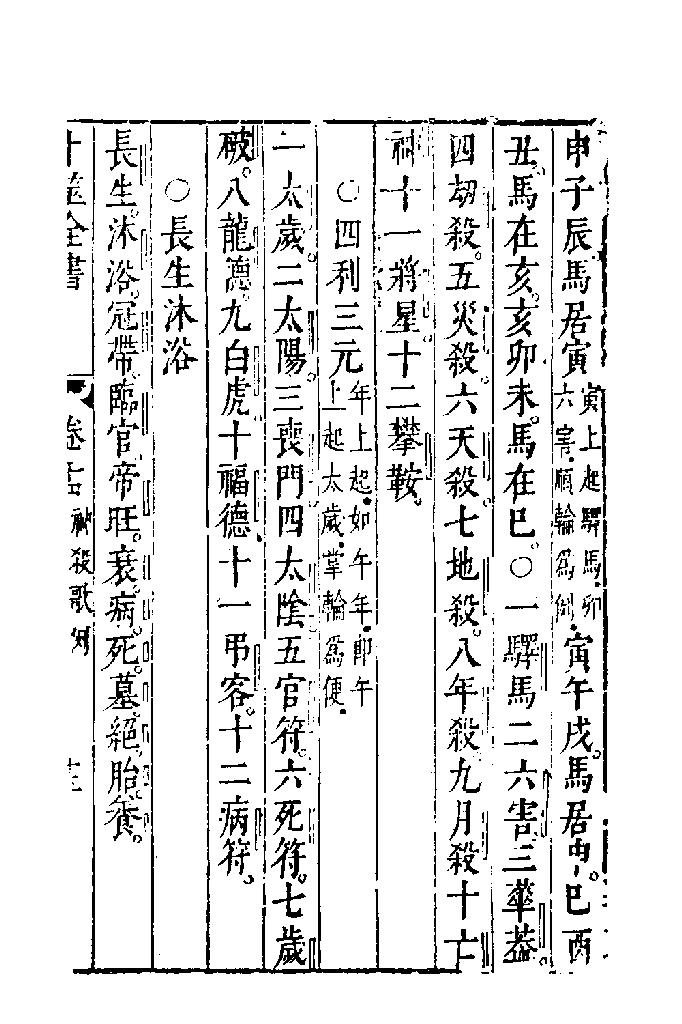 申子辰馬居寅寅上起驛馬卯六害順輪爲例寅午戌馬居申巳酉
丑馬在亥亥卯未馬在巳○一驛馬二六害三華葢
四刼殺五災殺六天殺七地殺八年殺九月殺十亡
神十一將星十二攀鞍
○四利三元年上起如午年卽午上起太歲掌輪爲便
一太歲二太陽三喪門四太隂五官符六死符七歲
破八龍德九白虎十福德十一弔客十二病符
○長生沐浴
長生沐浴冠帶臨官帝旺衰病死墓絕胎養
卜筮全書 卷十 神殺歌例 十三